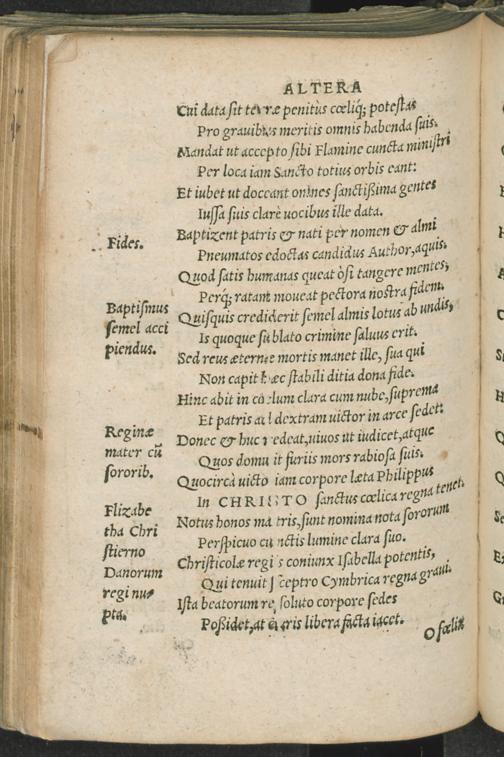 ALTERA
Cui data sit terræ penitùs cœliq́; potestas
Pro grauibus meritis omnis habenda suis.
Mandat ut accepto sibi Flamine cuncta ministri
Per loca iam Sancto totius orbis eant:
Et iubet ut doceant omnes sanctißima gentes
Iussa suis clarè uocibus ille data.
Fides.
Baptizent patris & nati per nomen & almi
Pneumatos edoctas candidus Author, aquis.
Quod satis humanas queat ò si tangere mentes,
Perq́; ratam moueat pectora nostra fidem.
Baptismus
semel acci
piendus.
Quisquis crediderit semel almis lotus ab undis,
Is quoque sublato crimine saluus erit.
Sed reus æternæ mortis manet ille, sua qui
Non capit hæc stabili ditia dona fide.
Hinc abit in cœlum clara cum nube, suprema
Et patris ad dextram uictor in arce sedet:
Reginæ
mater cũ
sororib.
Donec & huc redeat, uiuos ut iudicet, atque
Quos domuit furiis mors rabiosa suis.
Quocircà uicto iam corpore læta Philippus
In CHRISTO sanctus cœlica regna tenet.
Elizabe
tha Chri
stierno
Danorum
regi nu⸗
pta.
Notus honos matris, sunt nomina nota sororum
Perspicuo cunctis lumine clara suo.
Christicolæ regis coniunx Isabella potentis,
Qui tenuit sceptro Cymbrica regna graui.
Ista beatorum resoluto corpore sedes
Poßidet, at curis libera facta iacet.
O fœlix